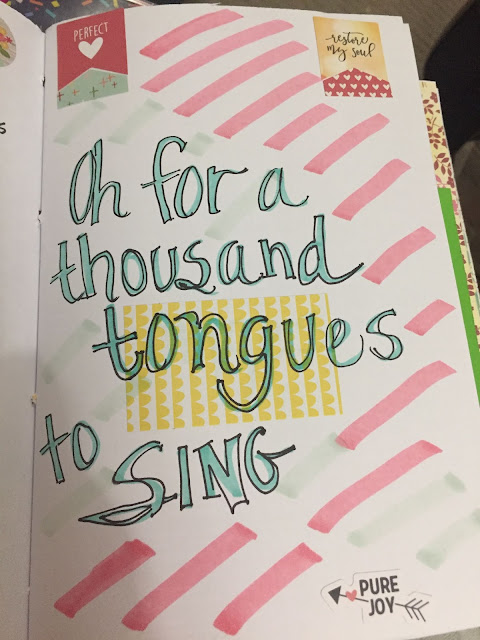 PERFECT
restore
my soul
Oh for a
thousand
tongues
to SING
PURE
JOY